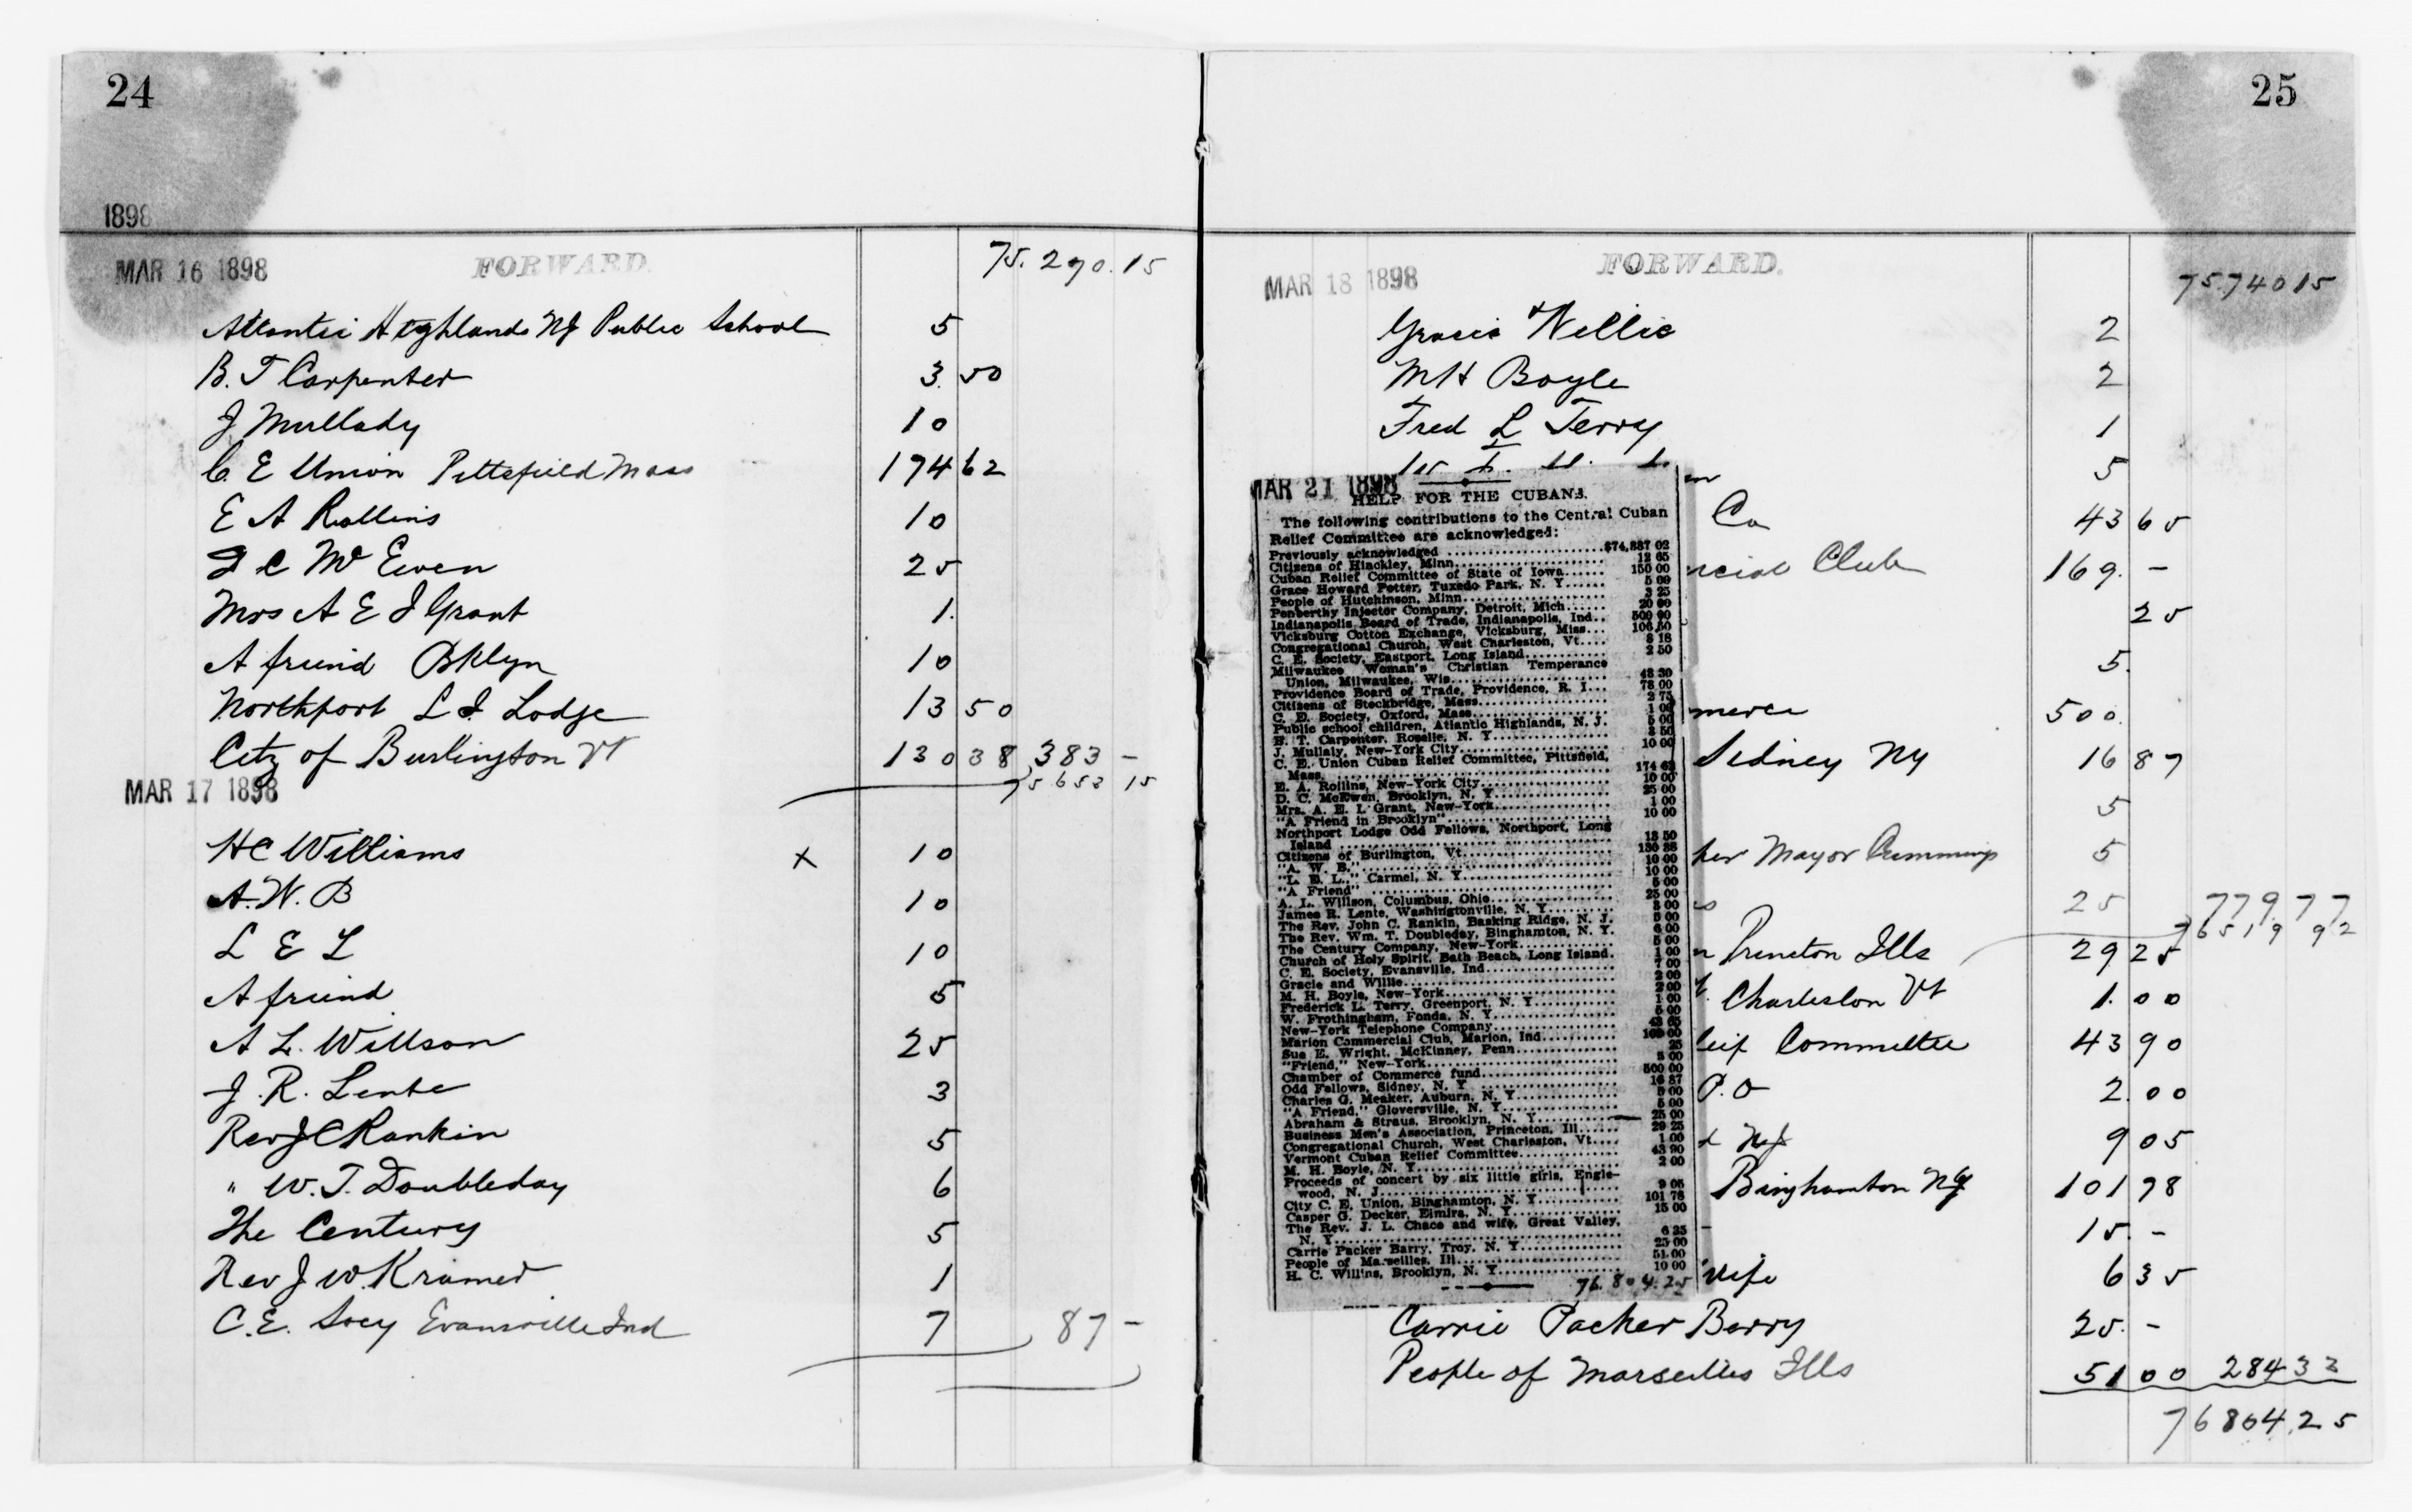 24
1898
MAR 16 1898 FORWARD. 75.290.15
Atlantic Highlands NJ Public School 5
B. T Carpenter 3.50
J Mullady 10
C. E Union Pittsfield Mass 174 62
E A Rollins 10
D C McEwen 25
Mrs A E I Grant 1.
A friend Bklyn 10
Northport L I. Lodge 13 50
City of Burlington Vt 130 38 383 -
MAR 17 1898 75653 15
H C Williams x 10
A. W. B 10
L E L 10
A friend 5
A L. Willson 25
J. R. Lente 3
Rev J C Rankin 5
" W. T. Doubleday 6
The Century 5
Rev J. W. Kramer 1
C. E. Socy Evansville Ind 7 87 -
25
MAR 18 1898 FORWARD. 75.740 15
Gracie + Willie 2
M H Boyle 2
Fred L Terry 1
5
Co 43 65
Club 169. -
25
5.
500.
Sidney NY 16 87
5
Mayor Cummings 5
25 779.77
76519 92
Princeton Ills 29 25
Charleston Vt 1.00
Committee 43 90
P. O 2.00
NJ 9 05
Binghamton NY 101 78
15. -
Wife 6 35
Carrie Packer Berry 25. -
People of Marseilles Ills 51 00 284 33
76804.25
MAR 21 1898
HELP FOR THE CUBANS.
The following contributions to the Central Cuban
Relief Committee are acknowledged:
Previously acknowledged $74,887 02
Citizens of Hinckley, Minn. 12 65
Cuban Relief Committee of State of Iowa 150 00
Grace Howard Potter, Tuxedo Park, N. Y. 5 00
People of Hutchinson, Minn. 3 25
Penberthy Injector Company, Detroit, Mich. 20 00
Indianapolis Board of Trade, Indianapolis, Ind. 500 00
Vicksburg Cotton Exchange, Vicksburg, Miss. 106 50
Congregational Church, West Charleston, Vt. 8 18
C. E. Society, Eastport, Long Island 2 50
Milwaukee Woman's Christian Temperance
Union, Milwaukee, Wis. 48 30
Providence Board of Trade, Providence, R. I. 78 00
Citizens of Stockbridge, Mass. 2 75
C. E. Society, Oxford, Mass. 1 00
Public school children, Atlantic Highlands, N. J. 5 00
B. T. Carpenter, Roselle, N. Y. 3 50
J. Mullaly, New-York City 10 00
C. E. Union Cuban Relief Committee, Pittsfield,
Mass. 174 62
E. A. Rollins, New-York City 10 00
D. C. McEwen, Brooklyn, N. Y. 25 00
Mrs. A. E. I. Grant, New-York 1 00
"A Friend in Brooklyn" 10 00
Northport Lodge Odd Fellows, Northport, Long
Island 13 50
Citizens of Burlington, Vt. 130 38
"A. W. B." 10 00
"L. E. L.," Carmel, N. Y. 10 00
"A Friend" 5 00
A. L. Willson, Columbus, Ohio 25 00
James R. Lente, Washingtonville, N. Y. 3 00
The Rev. John C. Rankin, Basking Ridge, N. J. 5 00
The Rev. Wm. T. Doubleday, Binghamton, N. Y. 6 00
The Century Company, New-York 5 00
Church of Holy Spirit, Bath Beach, Long Island. 1 00
C. E. Society, Evansville, Ind. 7 00
Gracie and Willie 2 00
M. H. Boyle, New-York 2 00
Frederick L. Terry, Greenport, N. Y. 1 00
W. Frothingham, Fonda, N. Y. 5 00
New-York Telephone Company 43 65
Marion Commercial Club, Marion, Ind. 169 00
Sue E. Wright, McKinney, Penn. 25
"Friend," New-York 5 00
Chamber of Commerce fund 500 00
Odd Fellows, Sidney, N. Y. 16 87
Charles G. Meaker, Auburn, N. Y. 5 00
"A Friend," Gloversville, N. Y. 5 00
Abraham & Straus, Brooklyn, N. Y. 25 00
Business Men's Association, Princeton, Ill. 29 25
Congregational Church, West Charleston, Vt. 1 00
Vermont Cuban Relief Committee 43 90
M. H. Boyle, N. Y. 2 00
Proceeds of concert by six little girls, Engle-
wood, N. J. 9 05
City C. E. Union, Binghamton, N. Y. 101 78
Casper G. Decker, Elmira, N. Y. 15 00
The Rev. J. L. Chace and wife, Great Valley,
N. Y. 6 35
Carrie Packer Barry, Troy, N. Y. 25 00
People of Marseilles, Ill. 51 00
H. C. Willins, Brooklyn, N. Y. 10 00
76.804.25